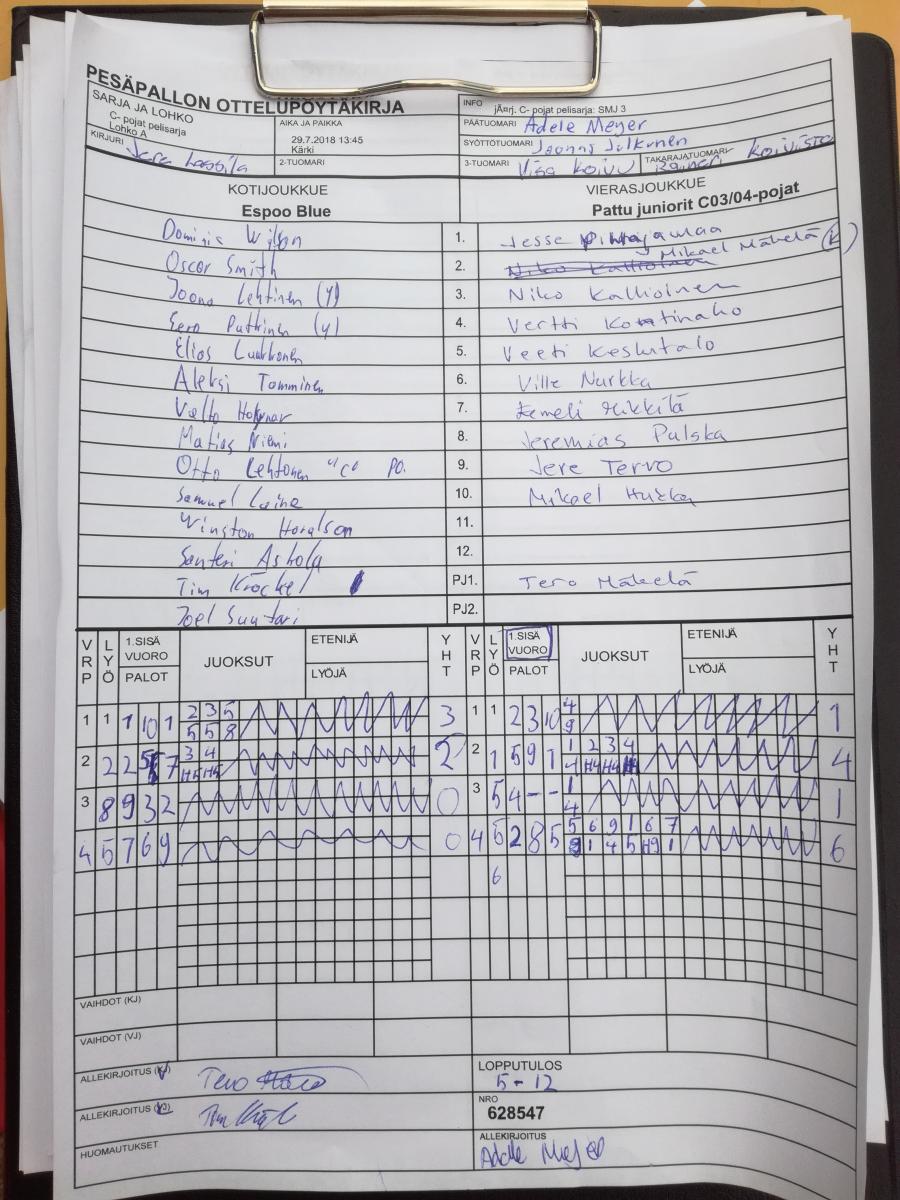 PESÄPALLON OTTELUPÖYTÄKIRJA
SARJA JA LOHKO
C- pojat pelisarja
Lohko A
AIKA JA PAIKKA
29.7.2018 13:45
Kärki
INFO
jÄ¤rj. C- pojat pelisarja: SMJ 3
PÄÄTUOMARI Adele Meyer
SYÖTTÖTUOMARI Joonas Julkunen
KIRJURI Jere
2-TUOMARI
3-TUOMARI Visa Koivu TAKARAJATUOMARI Koivisto
KOTIJOUKKUE
Espoo Blue
VIERASJOUKKUE
Pattu juniorit C03/04-pojat
Dominic Wilson 1. Jesse Pihlajamaa
Oscar Smith 2. Niko Kallioinen Mikael Mäkelä (K)
Joona Lehtinen (y) 3. Niko Kallioinen
Eero Putkinen (y) 4. Vertti Kontinaho
Elias Luukkonen 5. Veeti Keskitalo
Aleksi Tamminen 6. Ville Nurkka
Valto 7. Eemeli Mikkilä
Matias Niemi 8. Jeremias Pulska
Otto Lehtonen "C" PO. 9. Jere Tervo
Samuel Laine 10. Mikael Hukka
Winston Horalson 11.
Santeri Ashola 12.
Tim Kröckel PJ1. Tero Mäkelä
Joel Suutari PJ2.
VRP LYÖ 1.SISÄ VUORO PALOT JUOKSUT ETENIJÄ LYÖJÄ YHT VRP LYÖ 1.SISÄ VUORO PALOT JUOKSUT ETENIJÄ LYÖJÄ YHT
1 1 1 10 1 2 3 5 3 1 1 2 3 10 4 1
5 5 8 9
2 2 2 5 7 3 4 2 2 1 5 9 1 1 2 3 4 4
H5 H5 4 H4 H4 H4
3 8 9 3 2 0 3 5 4 - - 1 1
4
4 5 7 6 9 0 4 5 2 8 5 5 6 9 1 6 7 6
1 4 5 H9 1
6
VAIHDOT (KJ)
VAIHDOT (VJ)
ALLEKIRJOITUS Tero
LOPPUTULOS
5 - 12
ALLEKIRJOITUS
NRO
628547
HUOMAUTUKSET
ALLEKIRJOITUS
Adele Meyer